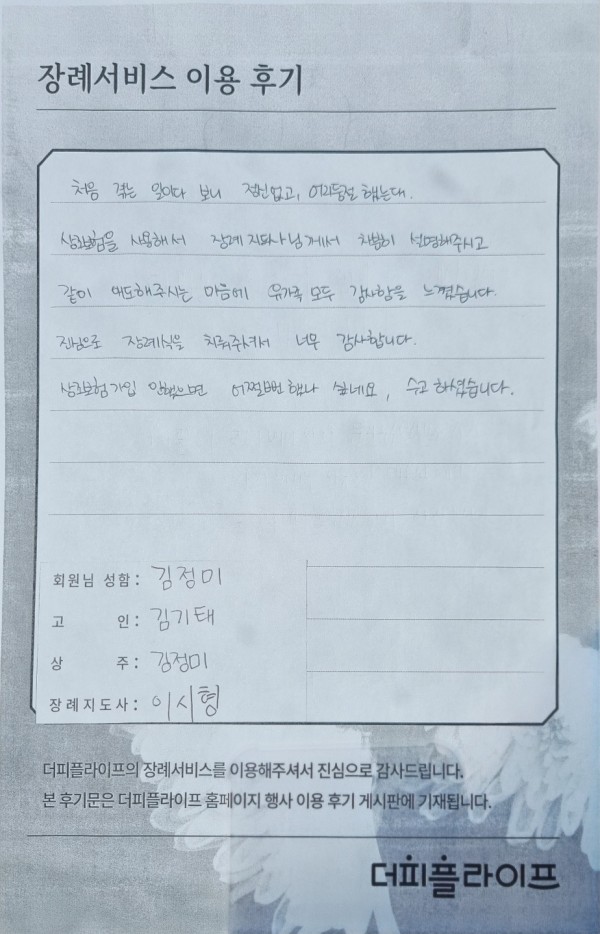 장례서비스 이용 후기
처음 겪는 일이다 보니 정신없고, 어리둥절 했는데.
상조보험을 사용해서 장례지도사님께서 차분히 설명해주시고
같이 애도해주시는 마음에 유가족 모두 감사함을 느꼈습니다.
진심으로 장례식을 치뤄주셔서 너무 감사합니다.
상조보험 가입 안했으면 어쩔뻔 했나 싶네요, 수고 하셨습니다.
회원님 성함: 김정미
고 인: 김기태
상 주: 김정미
장례지도사: 이시형
더피플라이프의 장례서비스를 이용해주셔서 진심으로 감사드립니다.
본 후기문은 더피플라이프 홈페이지 행사 이용 후기 게시판에 기재됩니다.
더피플라이프